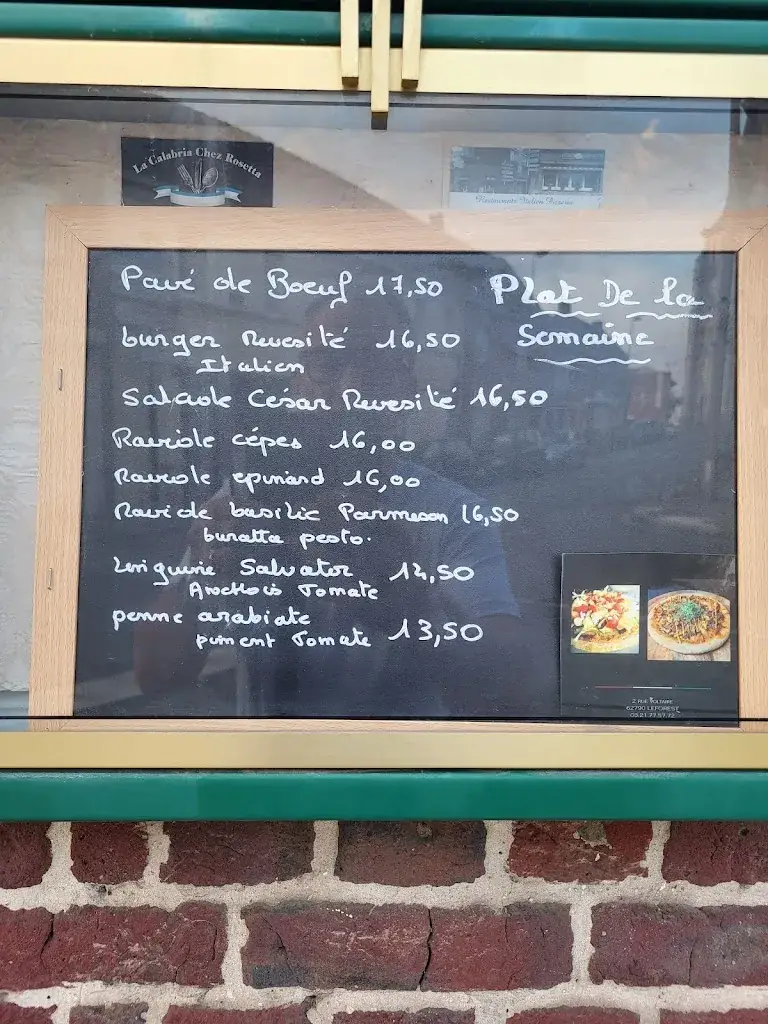 La Calabria Chez Rosetta
Pavé de Boeuf 17,50
Plat De la
Semaine
burger Revesité 16,50
Italien
Salade César Revesité 16,50
Raviole cépes 16,00
Raviole epinard 16,00
Raviole basilic Parmesan 16,50
buratta pesto.
Linguine Salvator 14,50
Anchois Tomate
penne arabiate
piment Tomate 13,50
2 RUE VOLTAIRE
62790 LEFOREST
03.21.77.57.72